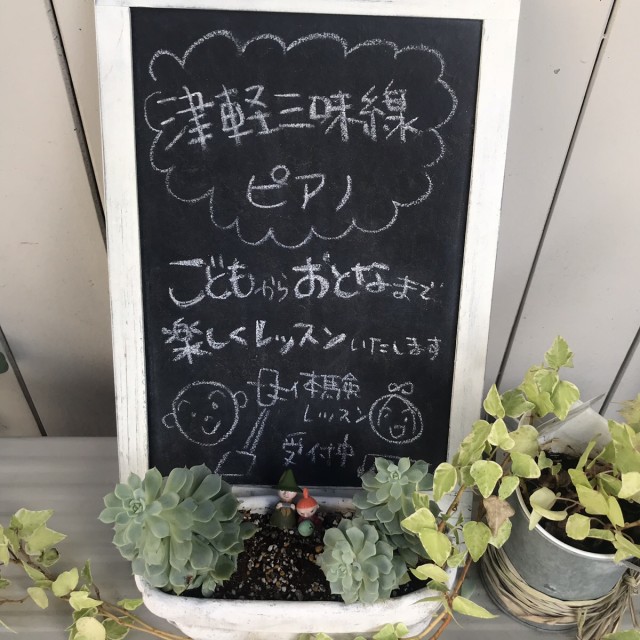 津軽三味線
ピアノ
こどもからおとなまで
楽しくレッスンいたします
体験
レッスン
受付中